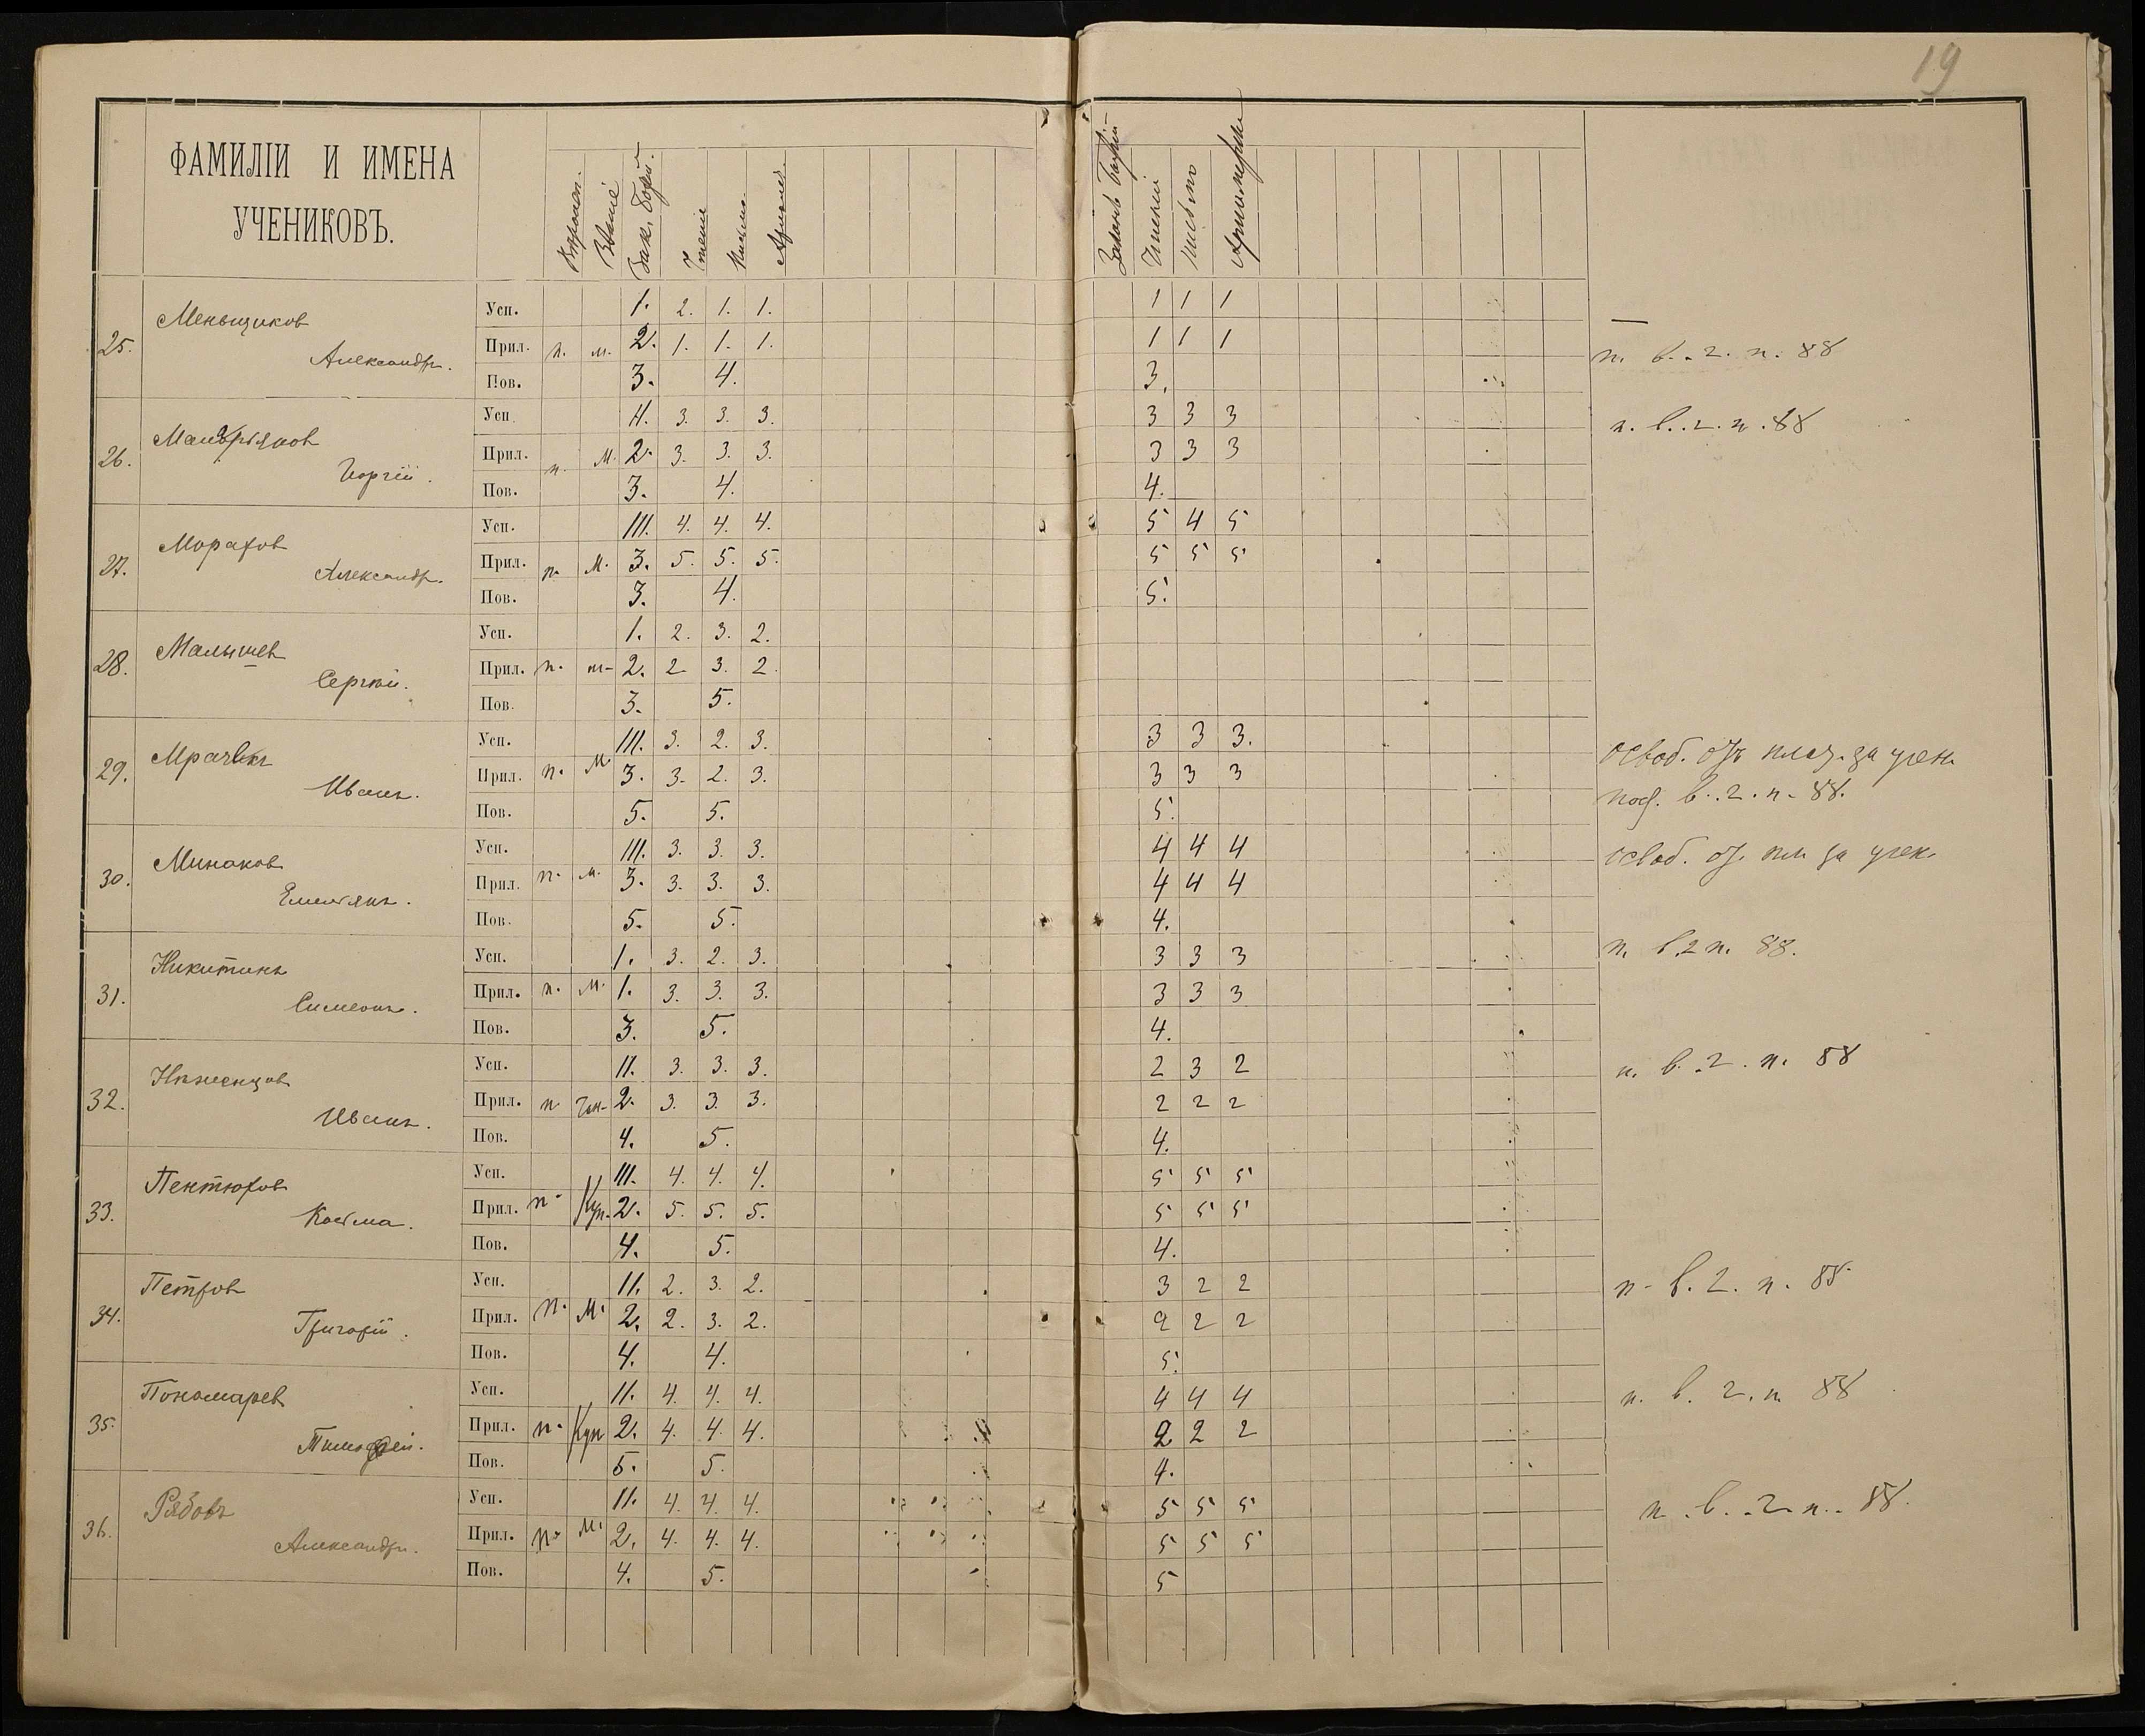 19
ФАМИЛІИ И ИМЕНА
УЧЕНИКОВЪ.
Зак. Божій. Чтеніе Письмо. Арифмет.
Законъ Божій Чтеніе Письмо Арифметика
25. Меньщиков Усп. 1. 2. 1. 1. 1 1 1
Александръ. Прил. п. м. 2. 1. 1. 1. 1 1 1 п. в. 2. п. 88
Пов. 3. 4. 3.
26. Усп. II. 3. 3. 3. 3 3 3 п. в. 2. п. 88
Георгій. Прил. п. М. 2. 3. 3. 3. 3 3 3
Пов. 3. 4. 4.
27. Морафов Усп. III. 4. 4. 4. 5 4 5
Александръ. Прил. п. М. 3. 5. 5. 5. 5 5 5
Пов. 3. 4. 5.
28. Малышев Усп. 1. 2. 3. 2.
Сергѣй. Прил. п. м. 2. 2 3. 2.
Пов. 3. 5.
29. Усп. III. 3. 2. 3. 3 3 3. освоб. отъ плат. за учен.
Иванъ. Прил. п. М. 3. 3. 2. 3. 3 3 3 в. 2. п. 88.
Пов. 5. 5. 5.
30. Минаков Усп. III. 3. 3. 3. 4 4 4 освоб. от. пл. за учен.
Емельянъ. Прил. п. м. 3. 3. 3. 3. 4 4 4
Пов. 5. 5. 4.
31. Никитинъ Усп. 1. 3. 2. 3. 3 3 3 п. в 2 п. 88.
Симеонъ. Прил. п. М. 1. 3. 3. 3. 3 3 3
Пов. 3. 5. 4.
32. Нѣженцов Усп. II. 3. 3. 3. 2 3 2 п. в. 2. п. 88
Иванъ. Прил. п. 2. 3. 3. 3. 2 2 2
Пов. 4. 5. 4.
33. Пентюхов Усп. III. 4. 4. 4. 5 5 5
Косма. Прил. п. Куп. 2. 5. 5. 5. 5 5 5
Пов. 4. 5. 4.
34. Петров Усп. II. 2. 3. 2. 3 2 2 п. в. 2. п. 88
Григорій. Прил. п. М. 2. 2. 3. 2. 2 2 2
Пов. 4. 4. 5.
35. Пономарев Усп. II. 4. 4. 4. 4 4 4 п. в. 2. п. 88
Тимофей. Прил. п. Куп 2. 4. 4. 4. 2 2 2
Пов. 5. 5. 4.
36. Рябовъ Усп. II. 4. 4. 4. 5 5 5 п. в. 2. п. 88.
Александръ. Прил. п. М. 2. 4. 4. 4. 5 5 5
Пов. 4. 5. 5